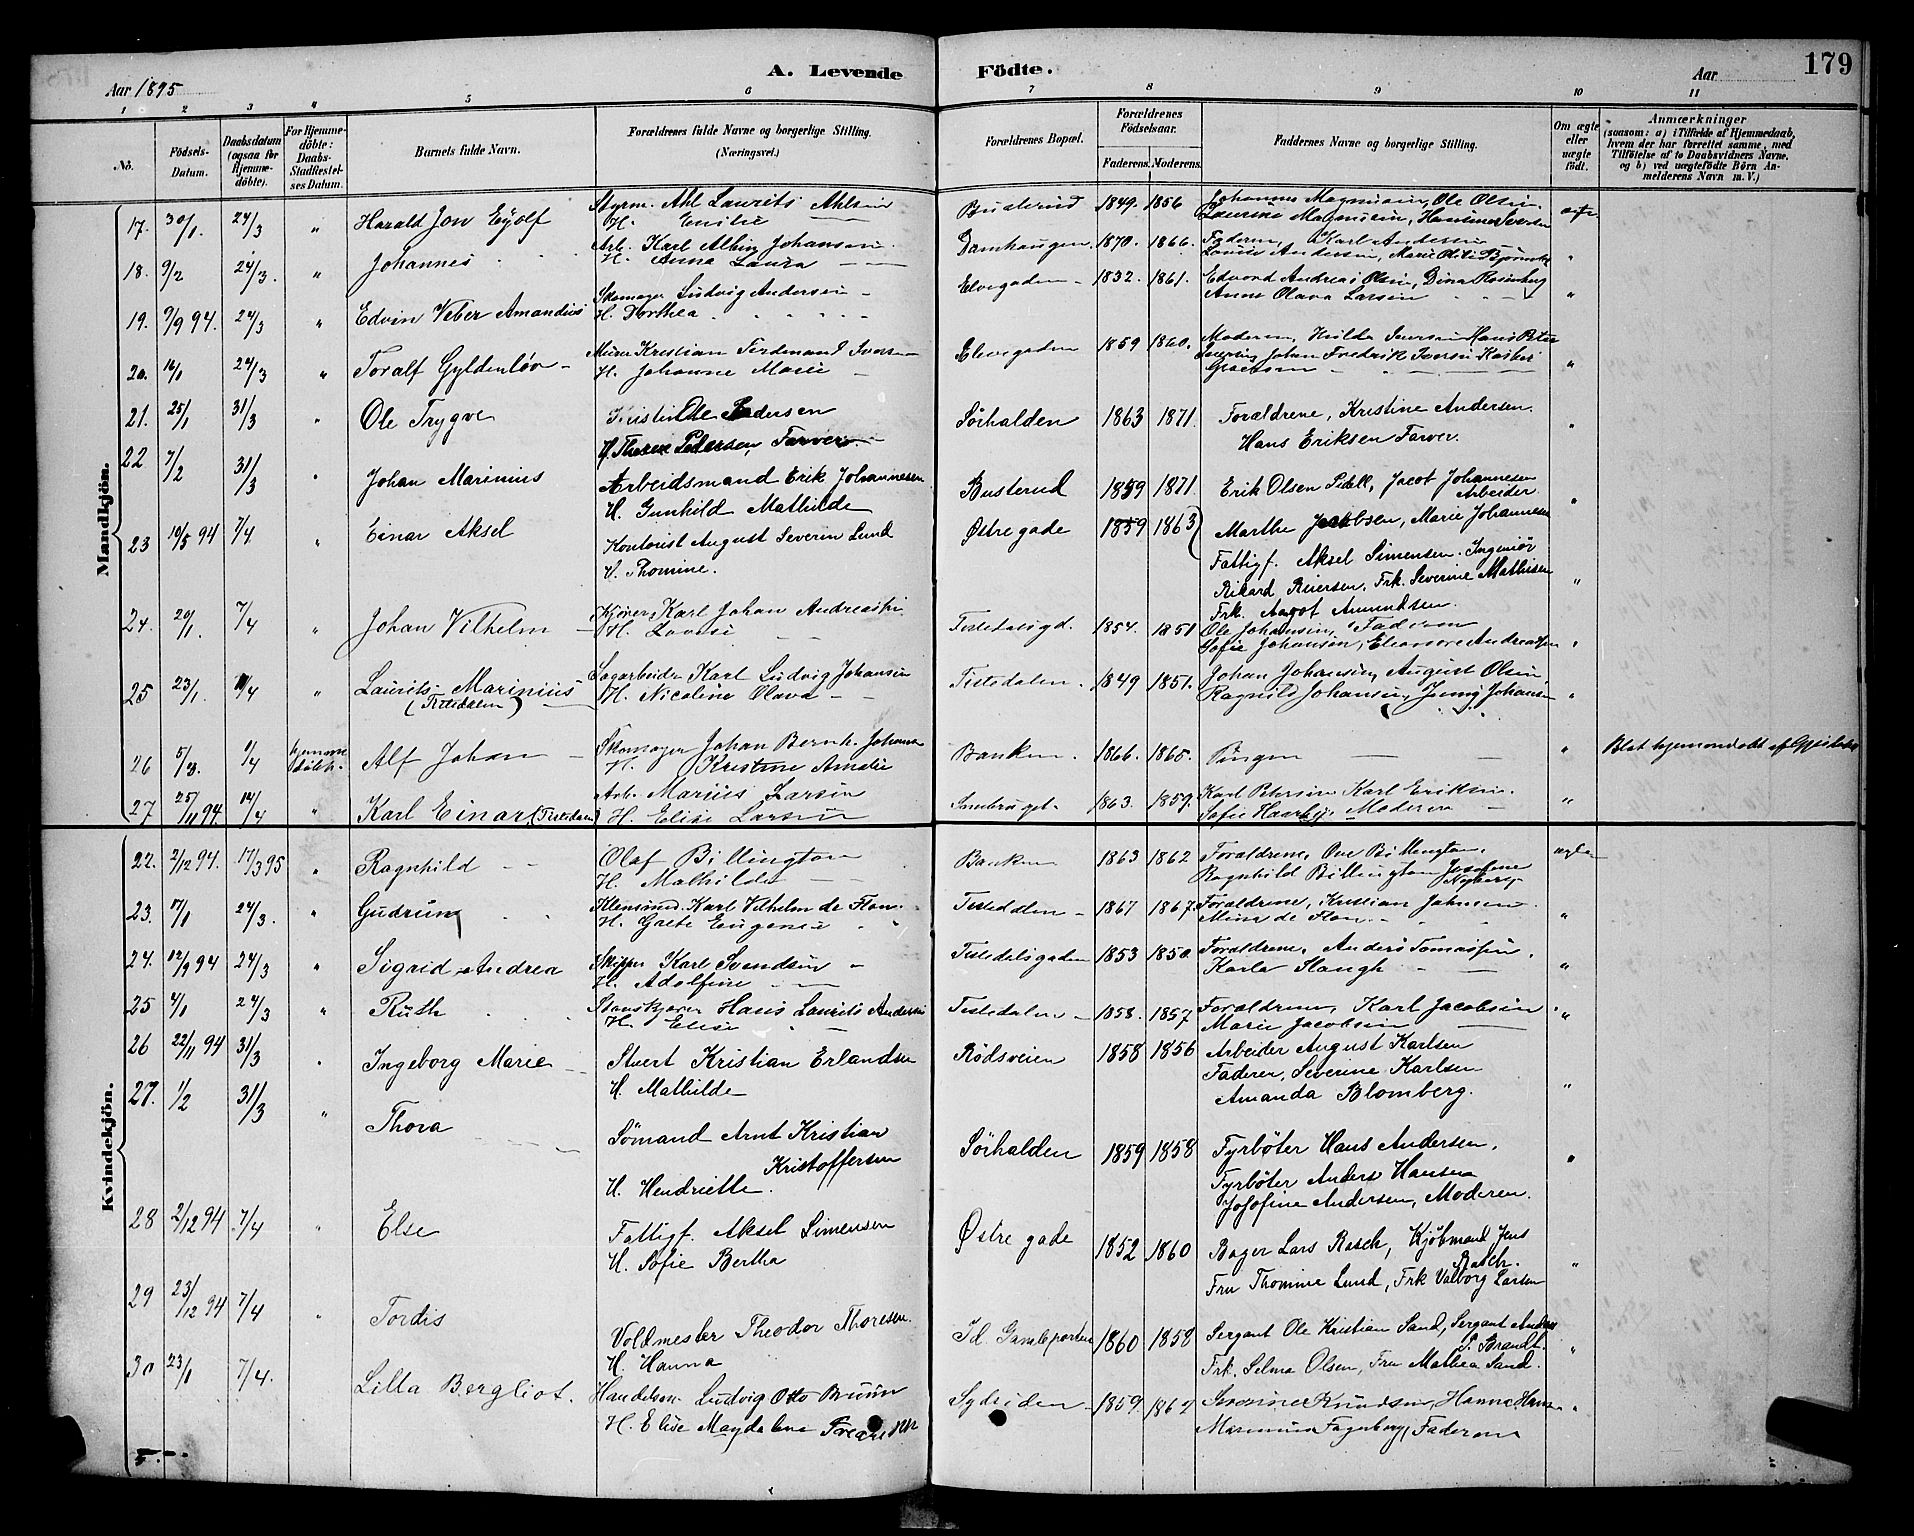 A. Levende Födte.
179
Aar 1895
Aar
1 2 3 4 5 6 7 8 9 10 11
No.
Födsels-Datum.
Daabsdatum (ogsaa for Hjemmedöbte).
For Hjemmedöbte: Daabs-Stadfestelses Datum.
Barnets fulde Navn.
Forældrenes fulde Navne og borgerlige Stilling. (Næringsvei.)
Forældrenes Bopæl.
Forældrenes Födselsaar.
Faderens. Moderens.
Faddernes Navne og borgerlige Stilling.
Om ægte eller uægte födt.
Anmærkninger
(saasom: a) i Tilfælde af Hjemmedaab, hvem der har forrettet samme, med Tilföielse af to Daabsvidners Navne, og b) ved uægtefödte Börn Anmelderens Navn m. V.)
Mandkjön.
17. 30/1. 24/3 " Harald Jon Eyolf
Styrm. Ahl Laurits Ahlsen
H. Emilie
Busterud 1849. 1856
Johannes Magnusen, Ole Olsen
18. 9/2 24/3. " Johannes
Arb. Karl Albin Johansen
H. Anna Laura
Damhaugen 1870. 1866.
Faderen, Karl Andersen
19. 9/9 94. 24/3 " Edvin Veber Amandius
Skomager Ludvig Andersen
H. Dorthea
Elvegaden 1832. 1861.
Edvard Andreas Olsen, Dina Rosenberg
Anne Olava Larsen "
20. 16/1 24/3 " Toralf Gyldenløv
Murer Kristian Ferdinand Iversen
H. Johanne Marie
Elvegaden 1859 1860.
Moderen, Hulda Iversen
Johan Fredrik Iversen "
21. 25/1 31/3 " Ole Trygve
Ole Pedersen
H. Pedersen, Farver
Sörhalden 1863 1871.
Forældrene, Kristine Andersen.
Hans Eriksen Farver. "
22 7/2 31/3 " Johan Marinius
Arbeidsmand Erik Johannesen
H. Gunhild Mathilde
Busterud 1859 1871
Erik Olsen, Jacob Johannesen
Arbeider "
23 10/5 94 7/4 " Einar Aksel
Kontorist August Severin Lund
H. Thomine.
Østre gade 1859 1863
Marthe Jacobsen, Marie Johannesen
Fattigf. Aksel Simensen. Ingeniør
Rikard Reiersen, Frk. Severine Mathisen
Frk. Aagot Amundsen. "
24. 20/1. 7/4 " Johan Vilhelm
Kjører Karl Johan Andreassen
H. Lovise
Tistedalsgd. 1854. 1851
Ole Johansen, Faderen
Sofie Johansen, Eleonore Andreassen "
25 23/1. /4 " Laurits Marinius
(Tistedalen)
Sagarbeider Karl Ludvig Johansen
H. Nicoline Olava
Tistedalen. 1849 1851.
Johan Johansen, August Olsen,
Ragnhild Johansen, Jenny Johansen "
26 5/3. 1/4 hjemme döbt Alf Johan
Skomager Johan Bernh. Johansen
H. Kristine Amalie
Banken. 1866. 1865.
Ingen "
27 25/11 94. 14/4 " Karl Einar (Tistedalen)
Arb. Marius Larsen
H. Elise Larsen
1863. 1859.
Karl Petersen Karl Eriksen.
Moderen "
Kvindekjön.
22. 2/12 94. 17/3 95 " Ragnhild
Olaf Billington
H. Mathilde
Banken 1863 1862
Forældrene, Ove Billington,
Ragnhild Billington Josefine Nyberg
23. 17/1 24/3. " Gudrun
Karl Vilhelm de Flon.
H. Grete Eugenie
Tistedalen 1867 1867.
Forældrene, Kristian Johnsen.
Mina de Flon "
24. 12/9 94 24/3 " Sigrid Andrea
Skipper Karl Svendsen
H. Adolfine
Tistedalsgaden 1853 1850.
Forældrene, Anders Tomassen,
Karla Haugh "
25 4/1 24/3 " Ruth
Hans Laurits Andersen
H. Elise
Tistedalen 1858. 1857
Forældrene, Karl Jacobsen
Marie Jacobsen "
26 22/11 94 31/3 " Ingeborg Marie
Stuert Kristian Erlandsen
H. Mathilde
Rödsveien 1858 1856
Arbeider August Karlsen
Faderen, Severine Karlsen
Amanda Blomberg. "
27. 1/2 31/3 " Thora
Sömand Arnt Kristian
Kristoffersen
H. Henriette.
Sörhalden 1859 1858
Fyrbøter Hans Andersen,
Fyrbøter Anders Hansen
Josofine Andersen, Moderen. "
28 2/12 94 7/4 " Else
Fattigf. Aksel Simensen
H. Sofie Bertha
Østre gade 1852 1860
Bager Lars Rasch, Kjöbmand Jens
Rasch.
Fru Thomine Lund, Frk Valborg Larsen "
29 23/12 94 7/4 " Tordis
Voldmester Theodor Thoresen.
H. Hanna
Id. Gamleporten 1860 1858
Sergant Ole Kristian Sand, Sergant Anders
P. Brandt.
Frk. Selma Olsen, Fru Mathea Sand. "
30 23/1 7/4. Lilla Bergliot.
Handelsm. Ludvig Otto Bruun
H. Elise Magdalene
Sydsiden 1859. 1867
Knudsen, Hanne Hansen
Fagerberg, Faderen "